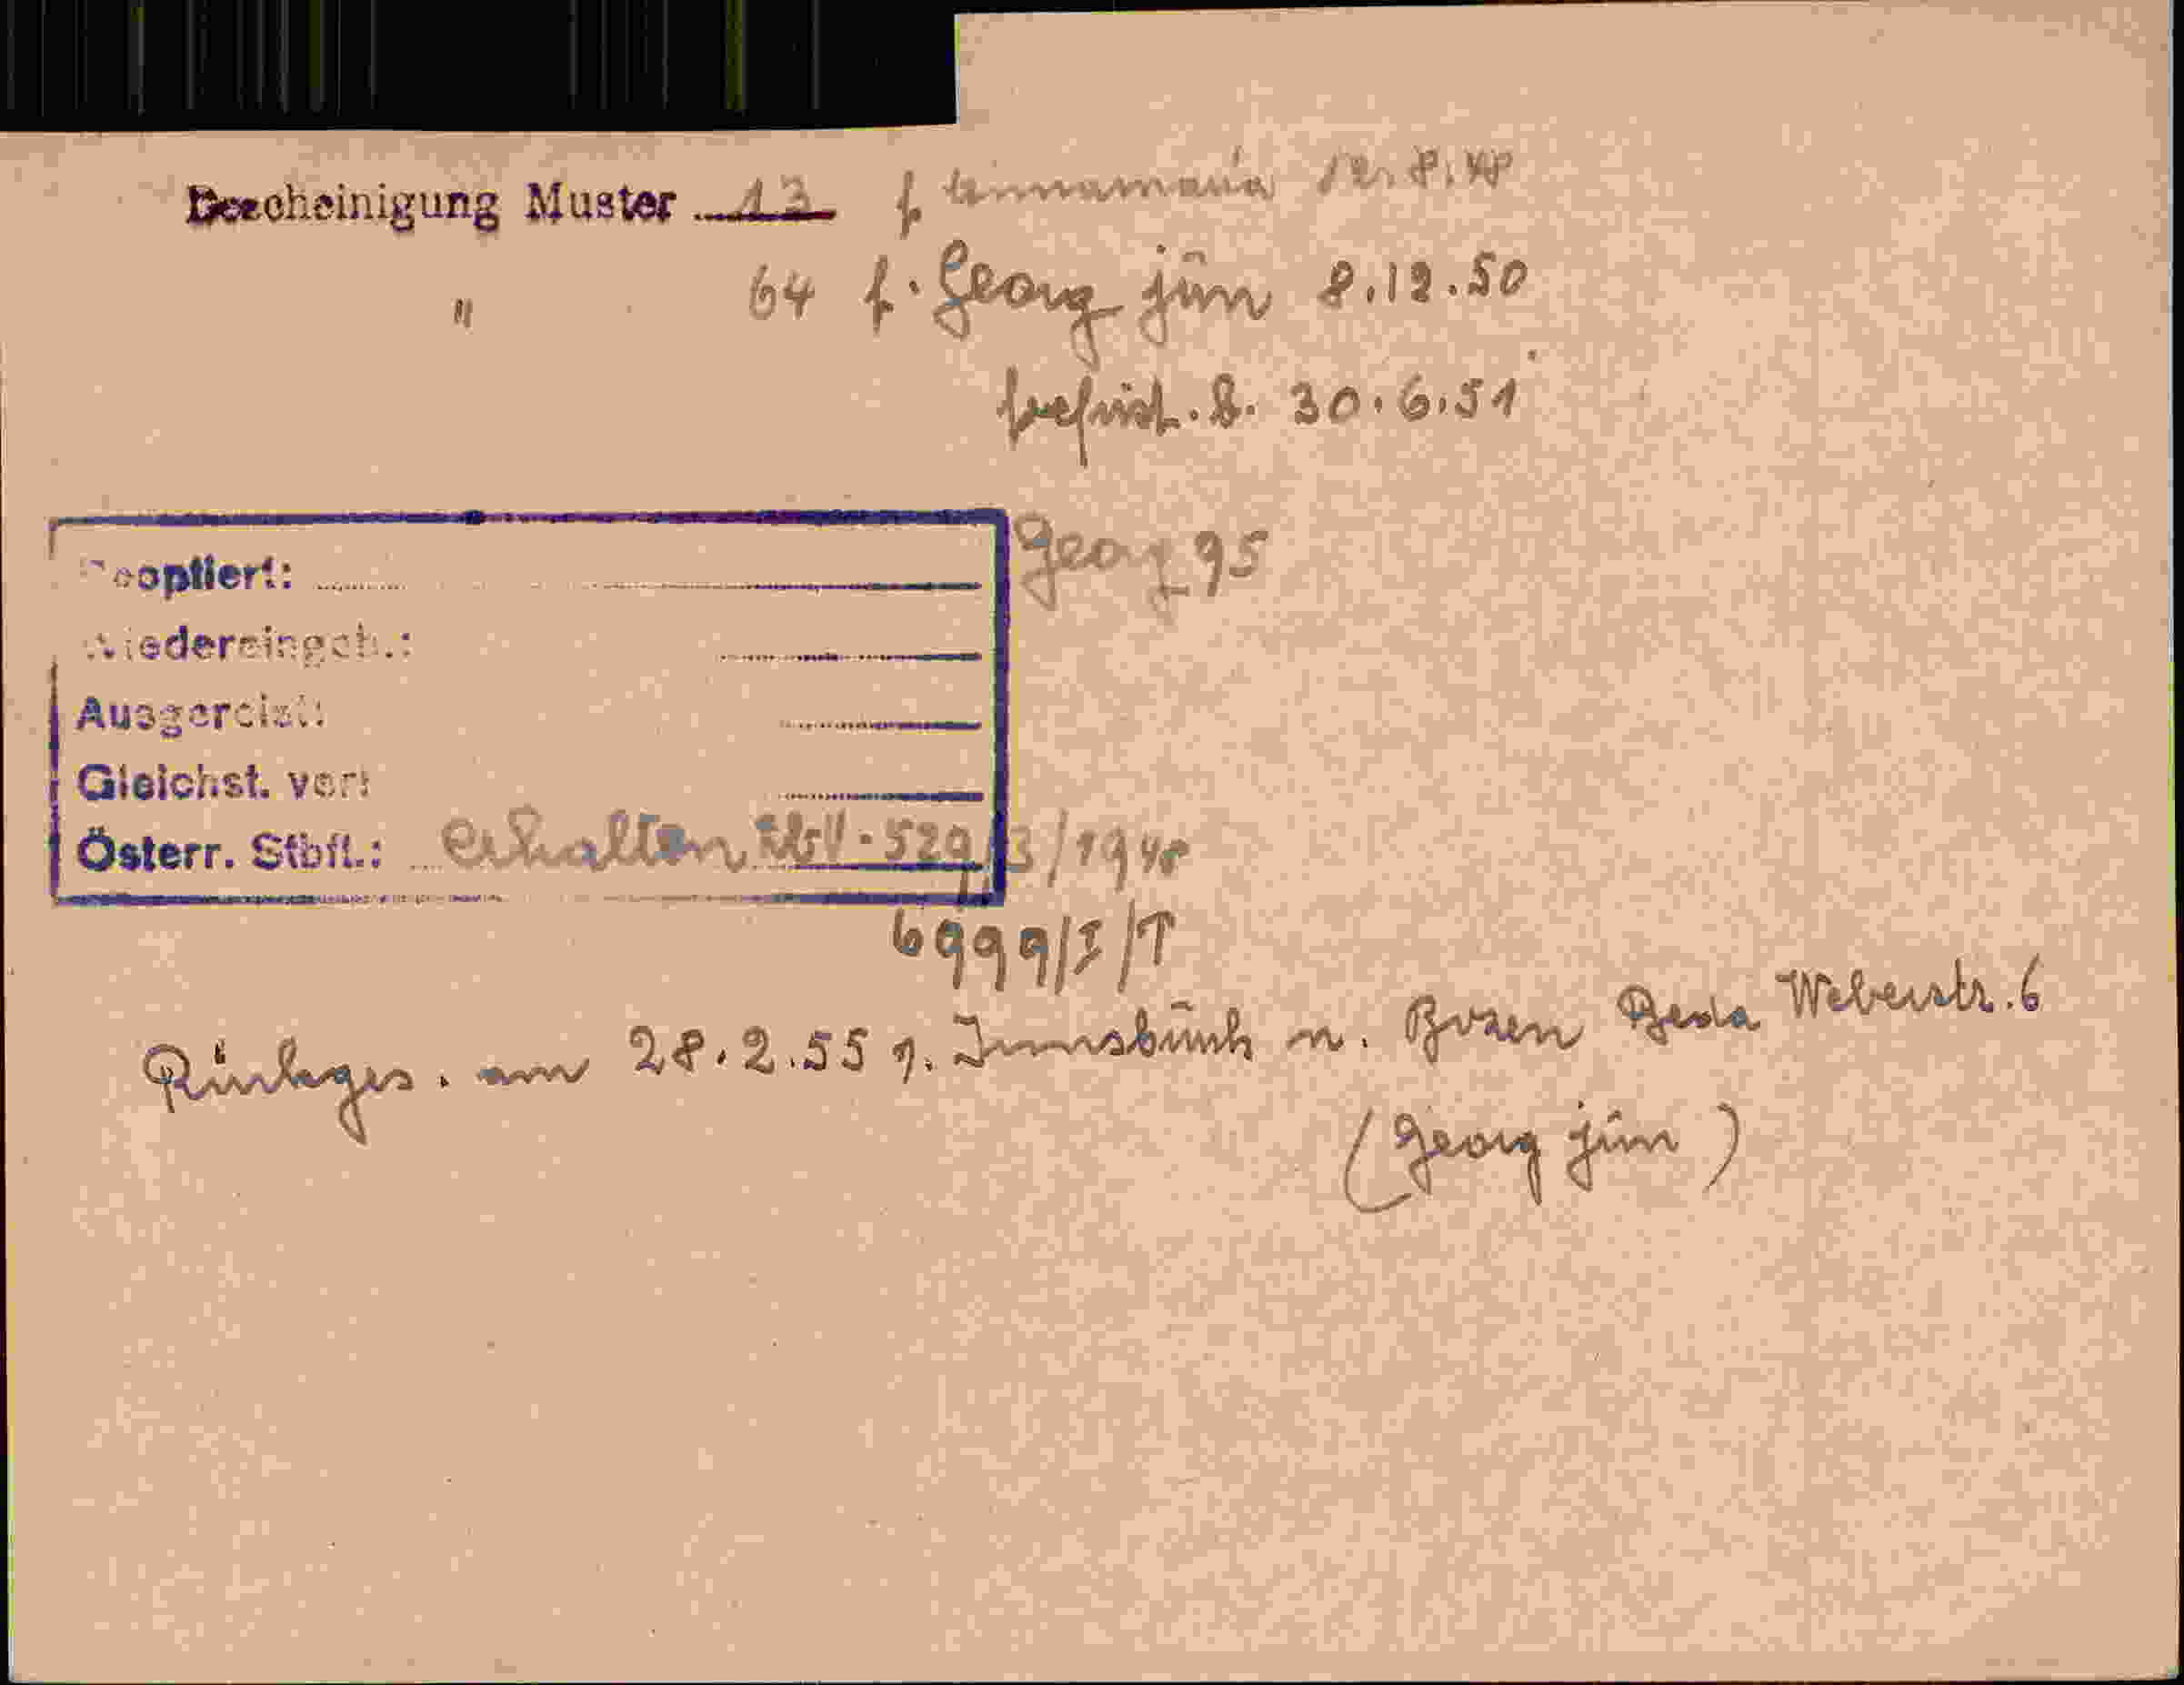 Bescheinigung Muster 13 f. Annamaria 12.8.48
" 64 f. Georg jun 8.12.50
befrist. b. 30.6.51
Reoptiert: Georg 95
Wiedereingeb.:
Ausgereist:
Gleichst. verl
Österr. Stbft.: erhalten 529/3/1948
6999/I/T
Rückges. am 28.2.55 v. Innsbruck n. Bozen Beda Weberstr. 6
(Georg jun)